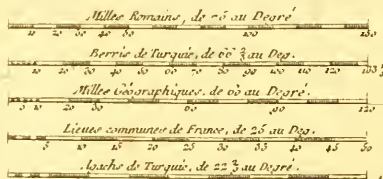 Milles Romains, de 75 au Degré
10 20 30 40 50 100 150
Berris de Turquie, de 66 ⅔ au Deg.
10 20 30 40 50 60 70 80 90 100 110 120
Milles Géographiques, de 60 au Degré.
10 20 30 60 90 120
Lieues communes de France, de 25 au Deg.
5 10 15 20 25 30 35 40 45 50
Agachs de Turquie, de 22 au Degré.